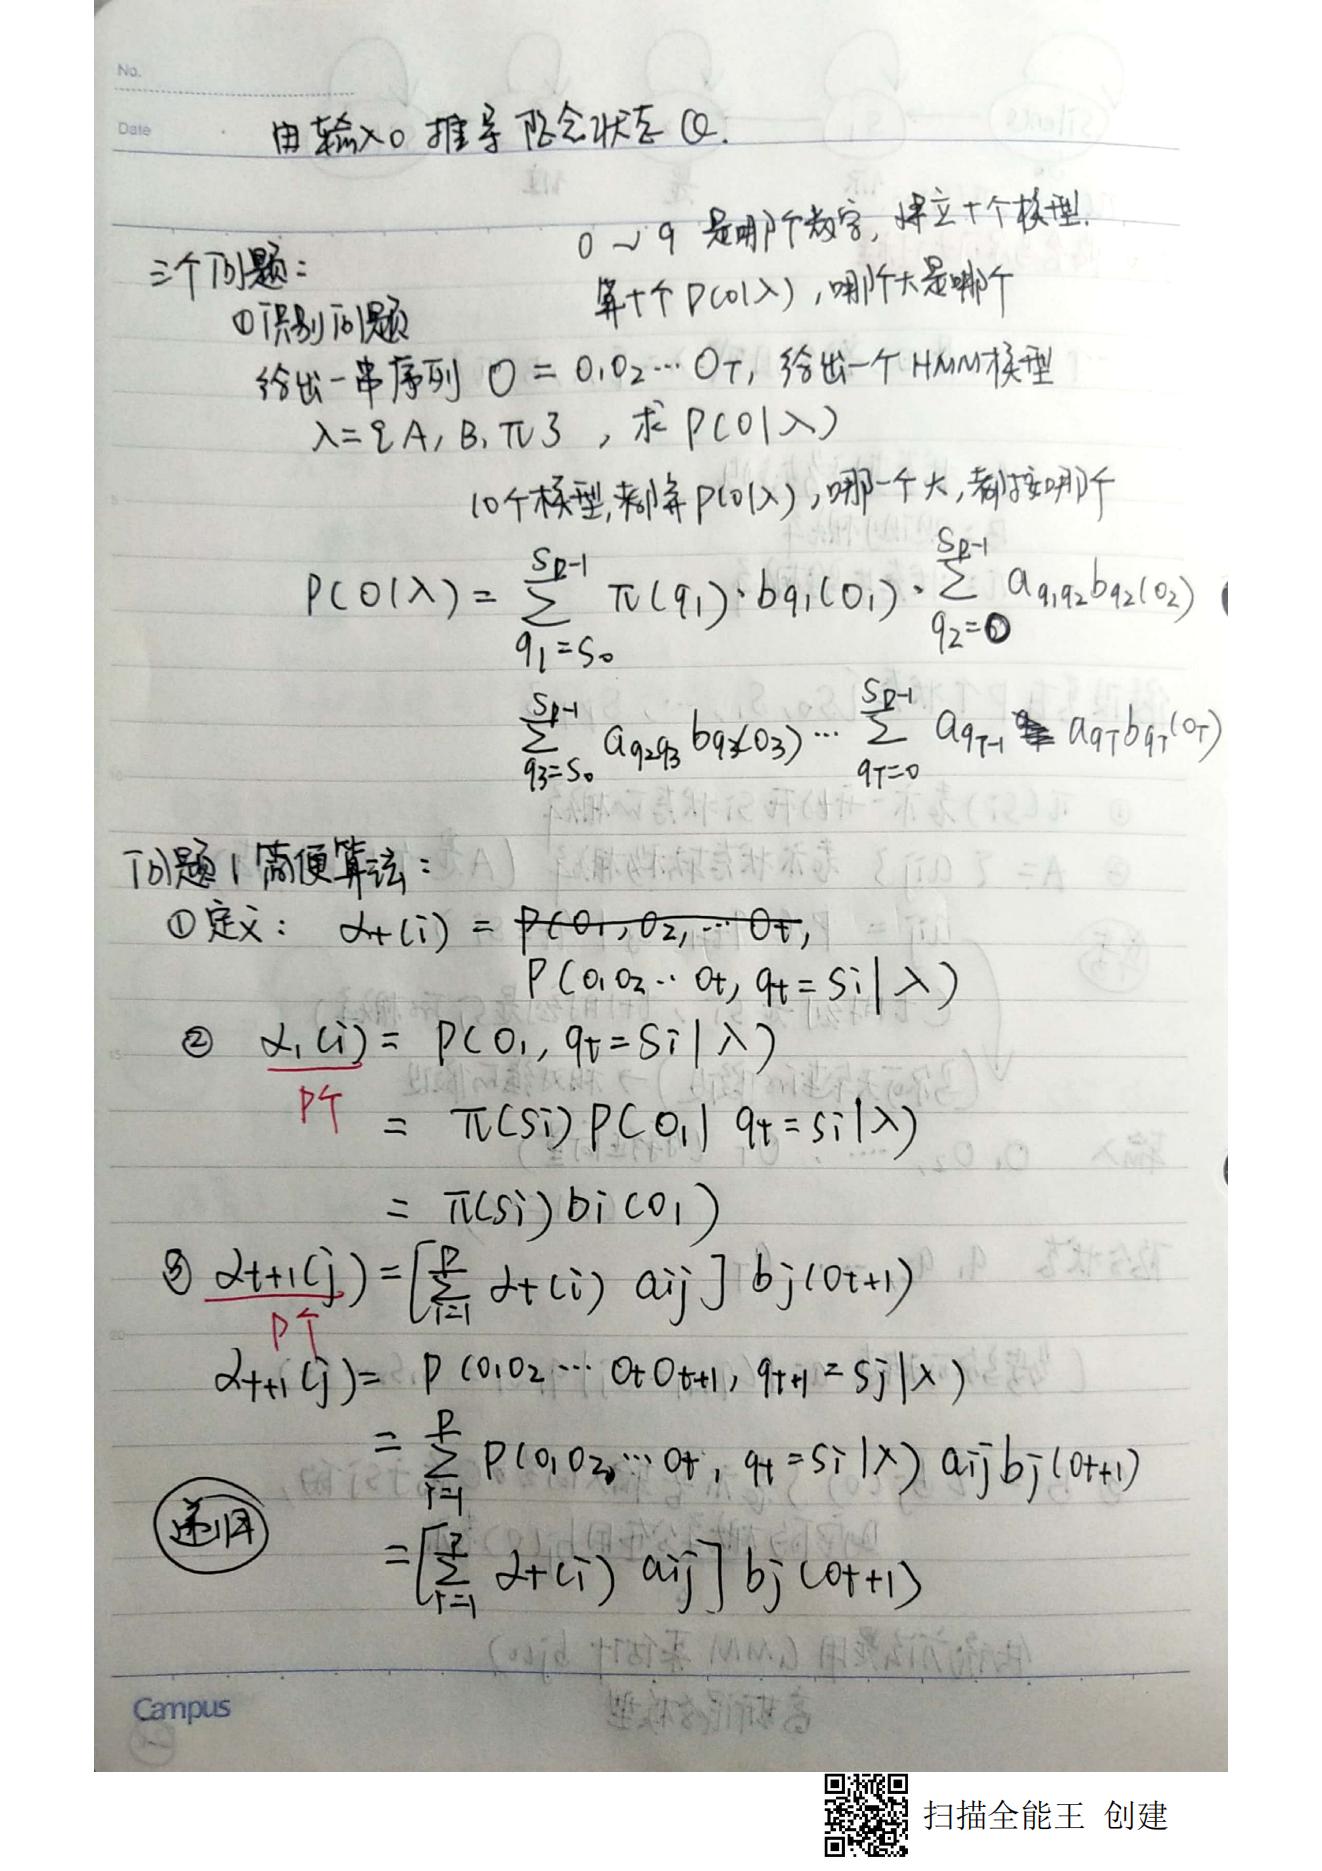 No.
Date
由输入O 推导 隐含状态 Q.
0 ~ 9 是哪个数字, 建立十个模型.
三个问题:
算十个 P(O|λ), 哪个大是哪个
①识别问题
给出一串序列 O = O₁O₂⋯O_T, 给出一个HMM模型
λ={A, B, π}, 求 P(O|λ)
10个模型,都算P(O|λ), 哪一个大,都按哪个
P(O|λ) = \sum_{q₁=S₀}^{S_{P-1}} π(q₁)·b_{q₁}(O₁)·\sum_{q₂=0}^{S_{P-1}} a_{q₁q₂}b_{q₂}(O₂)
\sum_{q₃=S₀}^{S_{P-1}} a_{q₂q₃} b_{q₃}(O₃)⋯ \sum_{q_T=0}^{S_{P-1}} a_{q_{T-1}} a_{q_T}b_{q_T}(O_T)
问题1 简便算法:
①定义: α_t(i) = P(O₁, O₂, ⋯ O_t,
P(O₁O₂⋯O_t, q_t = S_i|λ)
② α₁(i) = P(O₁, q_t = S_i|λ)
P个
= π(S_i) P(O₁| q_t = S_i|λ)
= π(S_i) b_i(O₁)
③ α_{t+1}(j) = [\sum_{i=1}^{P} α_t(i) a_{ij}] b_j(O_{t+1})
P个
α_{t+1}(j) = P(O₁O₂⋯O_tO_{t+1}, q_{t+1} = S_j|λ)
= \sum_{i=1}^{P} P(O₁O₂,⋯O_t, q_t = S_i|λ) a_{ij}b_j(O_{t+1})
递归
= [\sum_{i=1}^{P} α_t(i) a_{ij}] b_j(O_{t+1})
Campus
扫描全能王 创建